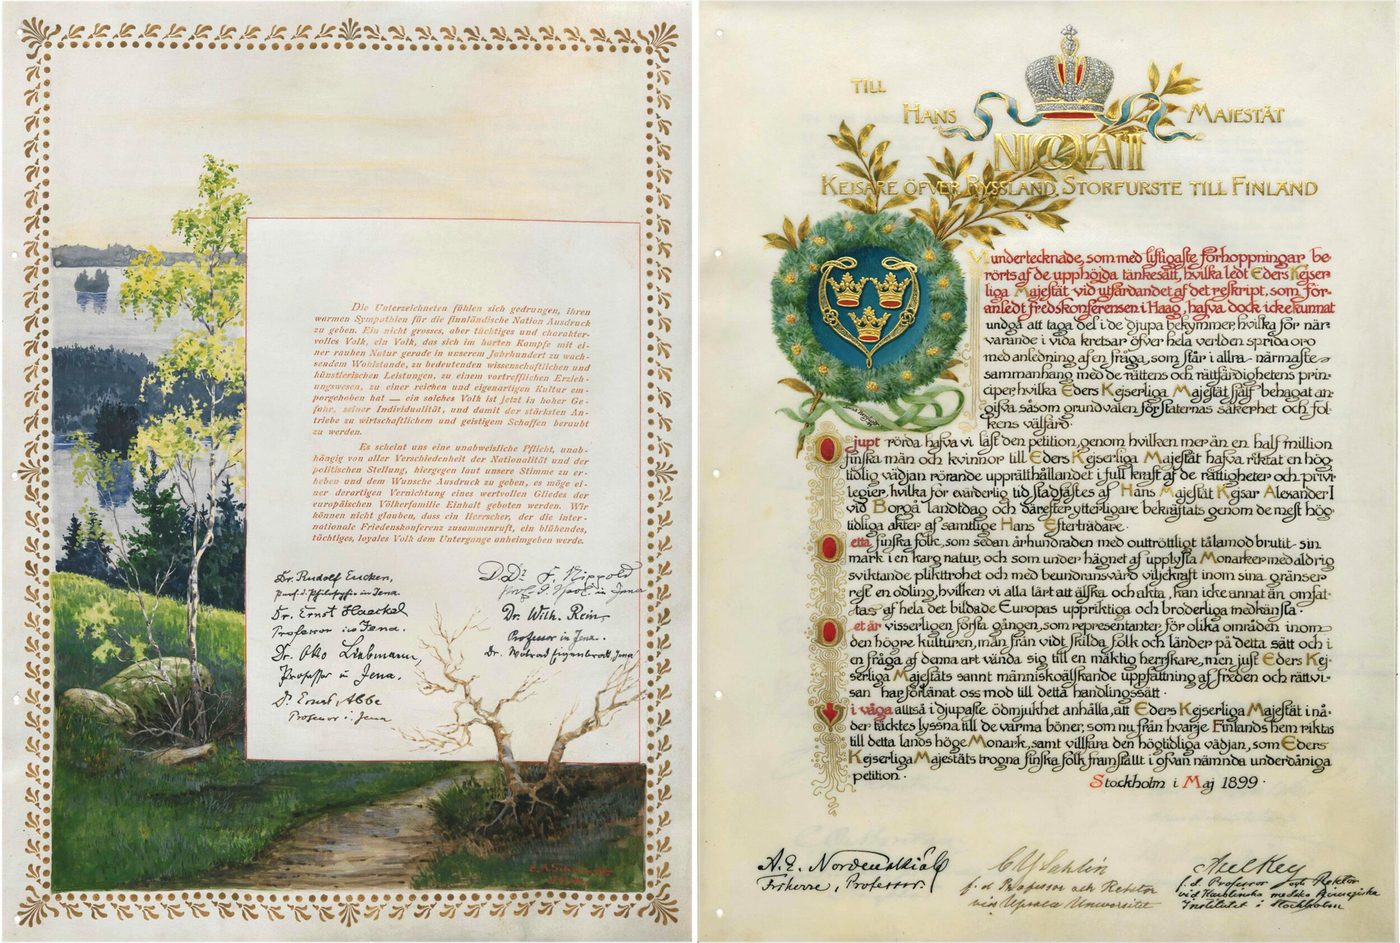 Die Unterzeichneten fühlen sich gedrungen, ihren
warmen Sympathien für die finnländische Nation Ausdruck
zu geben. Ein nicht grosses, aber tüchtiges und charakter-
volles Volk, ein Volk, das sich im harten Kampfe mit ei-
ner rauhen Natur gerade in unserem Jahrhundert zu wach-
sendem Wohlstande, zu bedeutenden wissenschaftlichen und
künstlerischen Leistungen, zu einem vortrefflichen Erzieh-
ungswesen, zu einer reichen und eigenartigen Kultur em-
porgehoben hat — ein solches Volk ist jetzt in hoher Ge-
fahr, seiner Individualität, und damit der stärksten An-
triebe zu wirthschaftlichem und geistigem Schaffen beraubt
zu werden.
Es scheint uns eine unabweisliche Pflicht, unab-
hängig von aller Verschiedenheit der Nationalität und der
politischen Stellung, hiergegen laut unsere Stimme zu er-
heben und dem Wunsche Ausdruck zu geben, es möge ei-
ner derartigen Vernichtung eines wertvollen Gliedes der
europäischen Völkerfamilie Einhalt geboten werden. Wir
können nicht glauben, dass ein Herrscher, der die inter-
nationale Friedenskonferenz zusammenruft, ein blühendes,
tüchtiges, loyales Volk dem Untergange anheimgeben werde.
Dr. Rudolf Eucken,
Prof. d. Philosophie in Jena.
Dr. Ernst Haeckel
Professor in Jena.
Dr. Otto Liebmann,
Professor in Jena.
Dr. Ernst Abbe
Professor i. Jena
D. Dr. F. Nippold
Prof. in Jena
Dr. Wilh. Rein,
Professor in Jena.
Dr. Eigenbrodt Jena
TILL
HANS MAJESTÄT
NICOLAI II
KEJSARE ÖFVER RYSSLAND, STORFURSTE TILL FINLAND
undertecknade, som med lifligaste förhoppningar be-
rörts af de upphöjda tänkesätt, hvilka ledt Eders Kejser-
liga Majestät vid utfärdandet af det reskript, som för-
anledt fredskonferensen i Haag, hafva dock icke kunnat
undgå att taga del i de djupa bekymmer, hvilka för när-
varande i vida kretsar öfver hela verlden sprida oro
med anledning af en fråga, som står i allra närmaste
sammanhang med de rättens och rättfärdighetens prin-
ciper, hvilka Eders Kejserliga Majestät sjelf behagat an-
gifva såsom grundvalen för staternas säkerhet och fol-
kens välfärd.
Djupt rörda hafva vi läst den petition, genom hvilken mer än en half million
finska män och kvinnor till Eders Kejserliga Majestät hafva riktat en hög-
tidlig vädjan rörande upprätthållandet i full kraft af de rättigheter och privi-
legier, hvilka för evärderlig tid stadfästes af Hans Majestät Kejsar Alexander I
vid Borgå landtdag och därefter ytterligare bekräftats genom de mest hög-
tidliga akter af samtlige Hans Efterträdare.
Detta finska folk, som sedan århundraden med outtröttligt tålamod brutit sin
mark i en karg natur, och som under hägnet af upplysta Monarker med aldrig
sviktande plikttrohet och med beundransvärd viljekraft inom sina gränser
rest en odling, hvilken vi alla lärt att älska och akta, kan icke annat än omfat-
tas af hela det bildade Europas uppriktiga och broderliga medkänsla.
Det är visserligen första gången, som representanter för olika områden inom
den högre kulturen, män från vidt skilda folk och länder på detta sätt och i
en fråga af denna art vända sig till en mäktig herrskare, men just Eders Kej-
serliga Majestäts sannt människoälskande uppfattning af freden och rättvi-
san har förlänat oss mod till detta handlingssätt.
Vi våga alltså i djupaste ödmjukhet anhålla, att Eders Kejserliga Majestät i nå-
der täcktes lyssna till de varma böner, som nu från hvarje Finlands hem riktas
till detta lands höge Monark, samt villfara den högtidliga vädjan, som Eders
Kejserliga Majestäts trogna finska folk framställt i ofvan nämnda underdåniga
petition.
Stockholm i Maj 1899.
A. E. Nordenskiöld
Friherre, Professor.
C Y Sahlin
f. d. Professor och Rektor
vid Upsala Universitet
Axel Key
f. d. Professor och Rektor
vid Karolinska mediko kirurgiska
Institutet i Stockholm